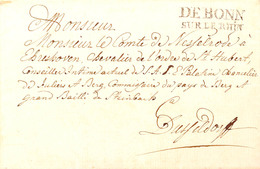 DE BONN
SUR LE RHIN
Monsieur
Monsieur le Comte de Nesselrode à
Ehreshoven, Chevalier de l'ordre de St Hubert,
Conseiller Intime actuel de S.A.S.E. Palatin Chancelier
de Juliers et Berg, Commissaire du pays de Berg et
grand Bailli de Steinbach
Dusseldorff